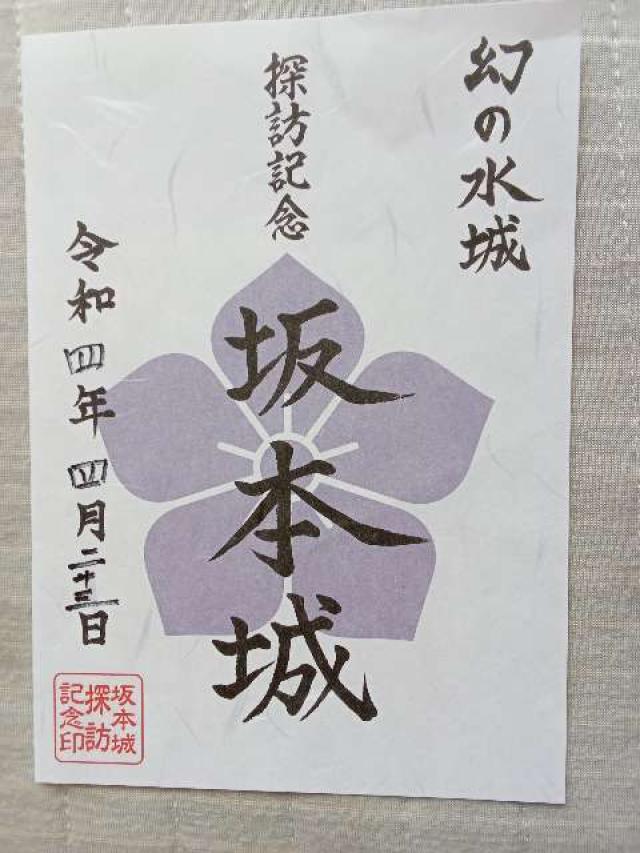 幻の水城
探訪記念
坂本城
令和四年四月二十三日
坂本城
探訪
記念印